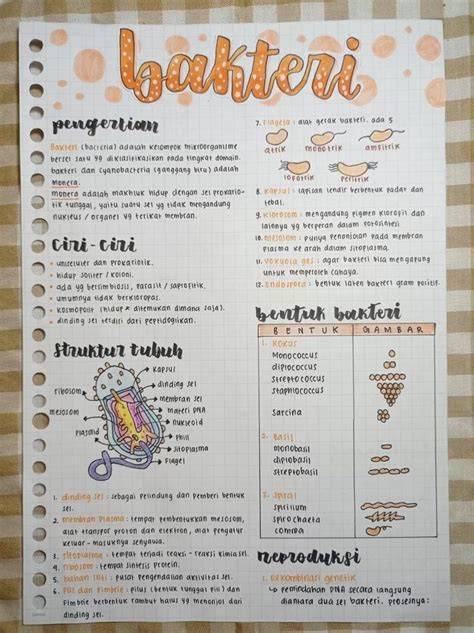 bakteri
pengertian
Bakteri (bacteria) adalah kelompok mikroorganisme
bersel satu yg diklasifikasikan pada tingkat domain.
bakteri dan cyanobacteria (ganggang biru) adalah
monera.
monera adalah makhluk hidup dengan sel prokario-
tik tunggal, yaitu suatu sel yg tidak mengandung
nukleus / organel yg terikat membran.
ciri-ciri
• uniseluler dan prokariotik.
• hidup soliter / koloni.
• ada yg bersimbiosis, parasit / saprofitik.
• umumnya tidak berkloroplas.
• kosmopolit (hidup & ditemukan dimana saja).
• dinding sel terdiri dari peptidoglikan.
struktur tubuh
kapsul
dinding sel
ribosom
membran sel
mesosom
materi DNA
nukleoid
plasmid
Pilli
sitoplasma
Flagel
1. dinding sel : sebagai pelindung dan pemberi bentuk
sel.
2. membran plasma : tempat pembentukkan mesosom,
alat transpor proton dan elektron, alat pengatur
keluar-masuknya senyawa.
3. sitoplasma : tempat terjadi reaksi-reaksi kimia sel.
4. ribosom : tempat sintesis protein.
5. bahan inti : pusat pengendalian aktivitas sel.
6. Pili dan Fimbrie : pilus (bentuk tunggal pili) dan
Fimbrie berbentuk rambut halus yg menonjol dari
dinding sel.
7. Flagela : alat gerak bakteri. ada 5
atrik monotrik amfitrik
lofotrik peritrik
8. kapsul : lapisan lendir berbentuk padat dan
tebal.
9. klorosom : mengandung pigmen klorofil dan
lainnya yg berperan dalam fotosintesis
10. mesosom : punya penonjolan pada membran
plasma ke arah dalam sitoplasma.
11. vakuola gas : agar bakteri bisa mengapung
untuk memperoleh cahaya.
12. Endospora : bentuk laten bakteri gram positif.
bentuk bakteri
BENTUK GAMBAR
1. Kokus
Monococcus
diplococcus
streptococcus
staphilococcus
sarcina
2. Basil
monobasil
diplobasil
streptobasil
spiral
spirilium
spirochaeta
comma
reproduksi
1. Rekombinasi genetik
↳ Pemindahan DNA secara langsung
diantara dua sel bakteri. prosesnya: